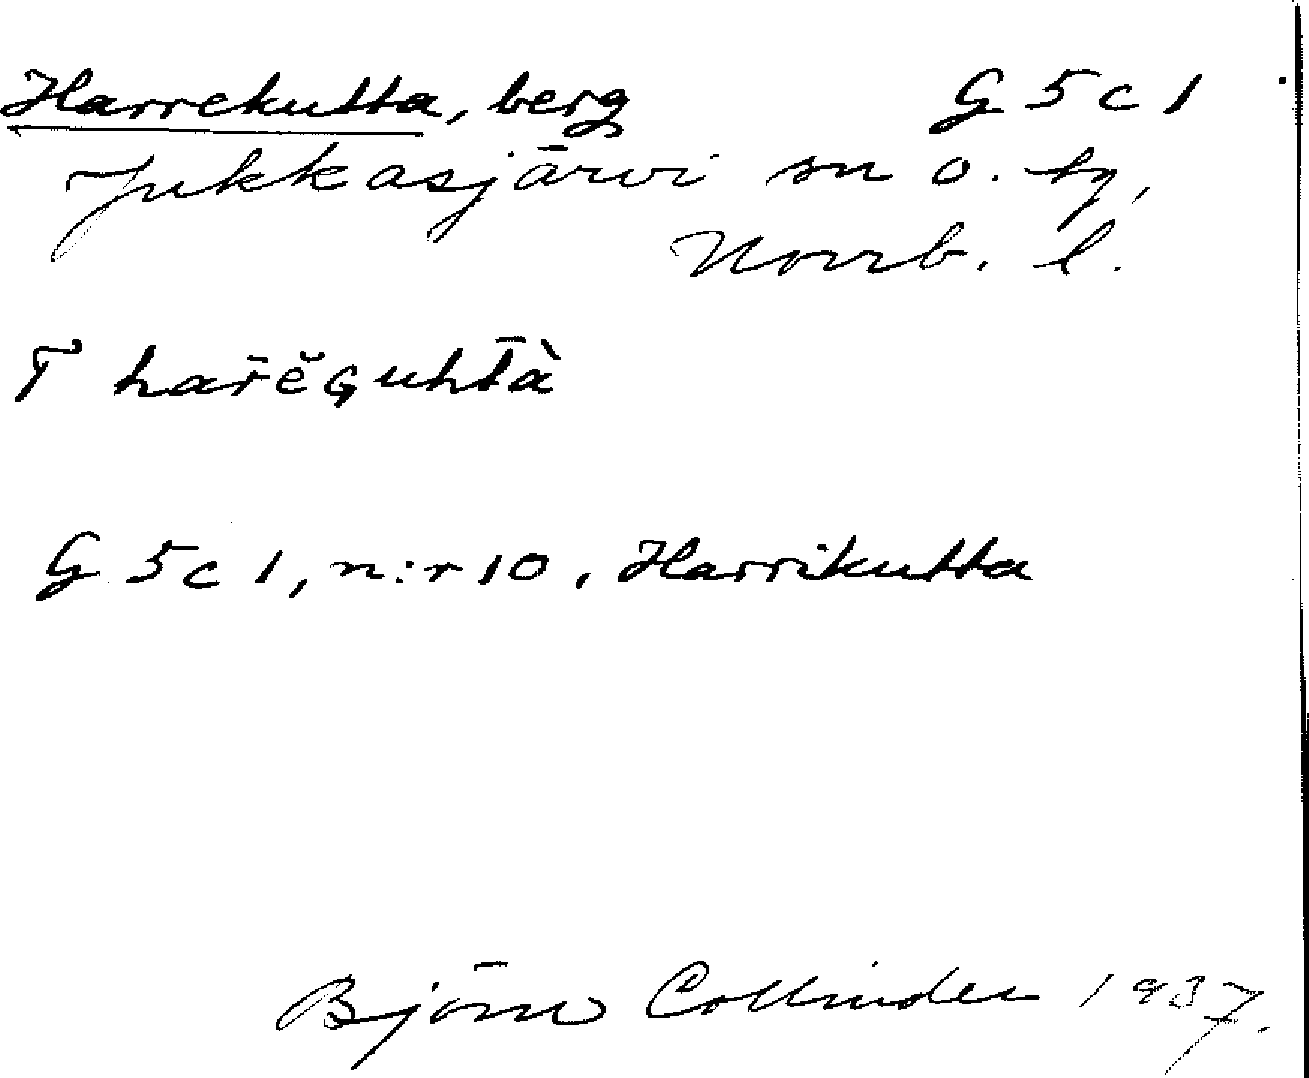 Harrekutta, berg G 5 c 1
Jukkasjärvi sn o. tg,
Norrb. l.
T har̄ĕguht̄à
G 5 c 1, n:r 10, Harrikutta
Björn Collinder 1937.